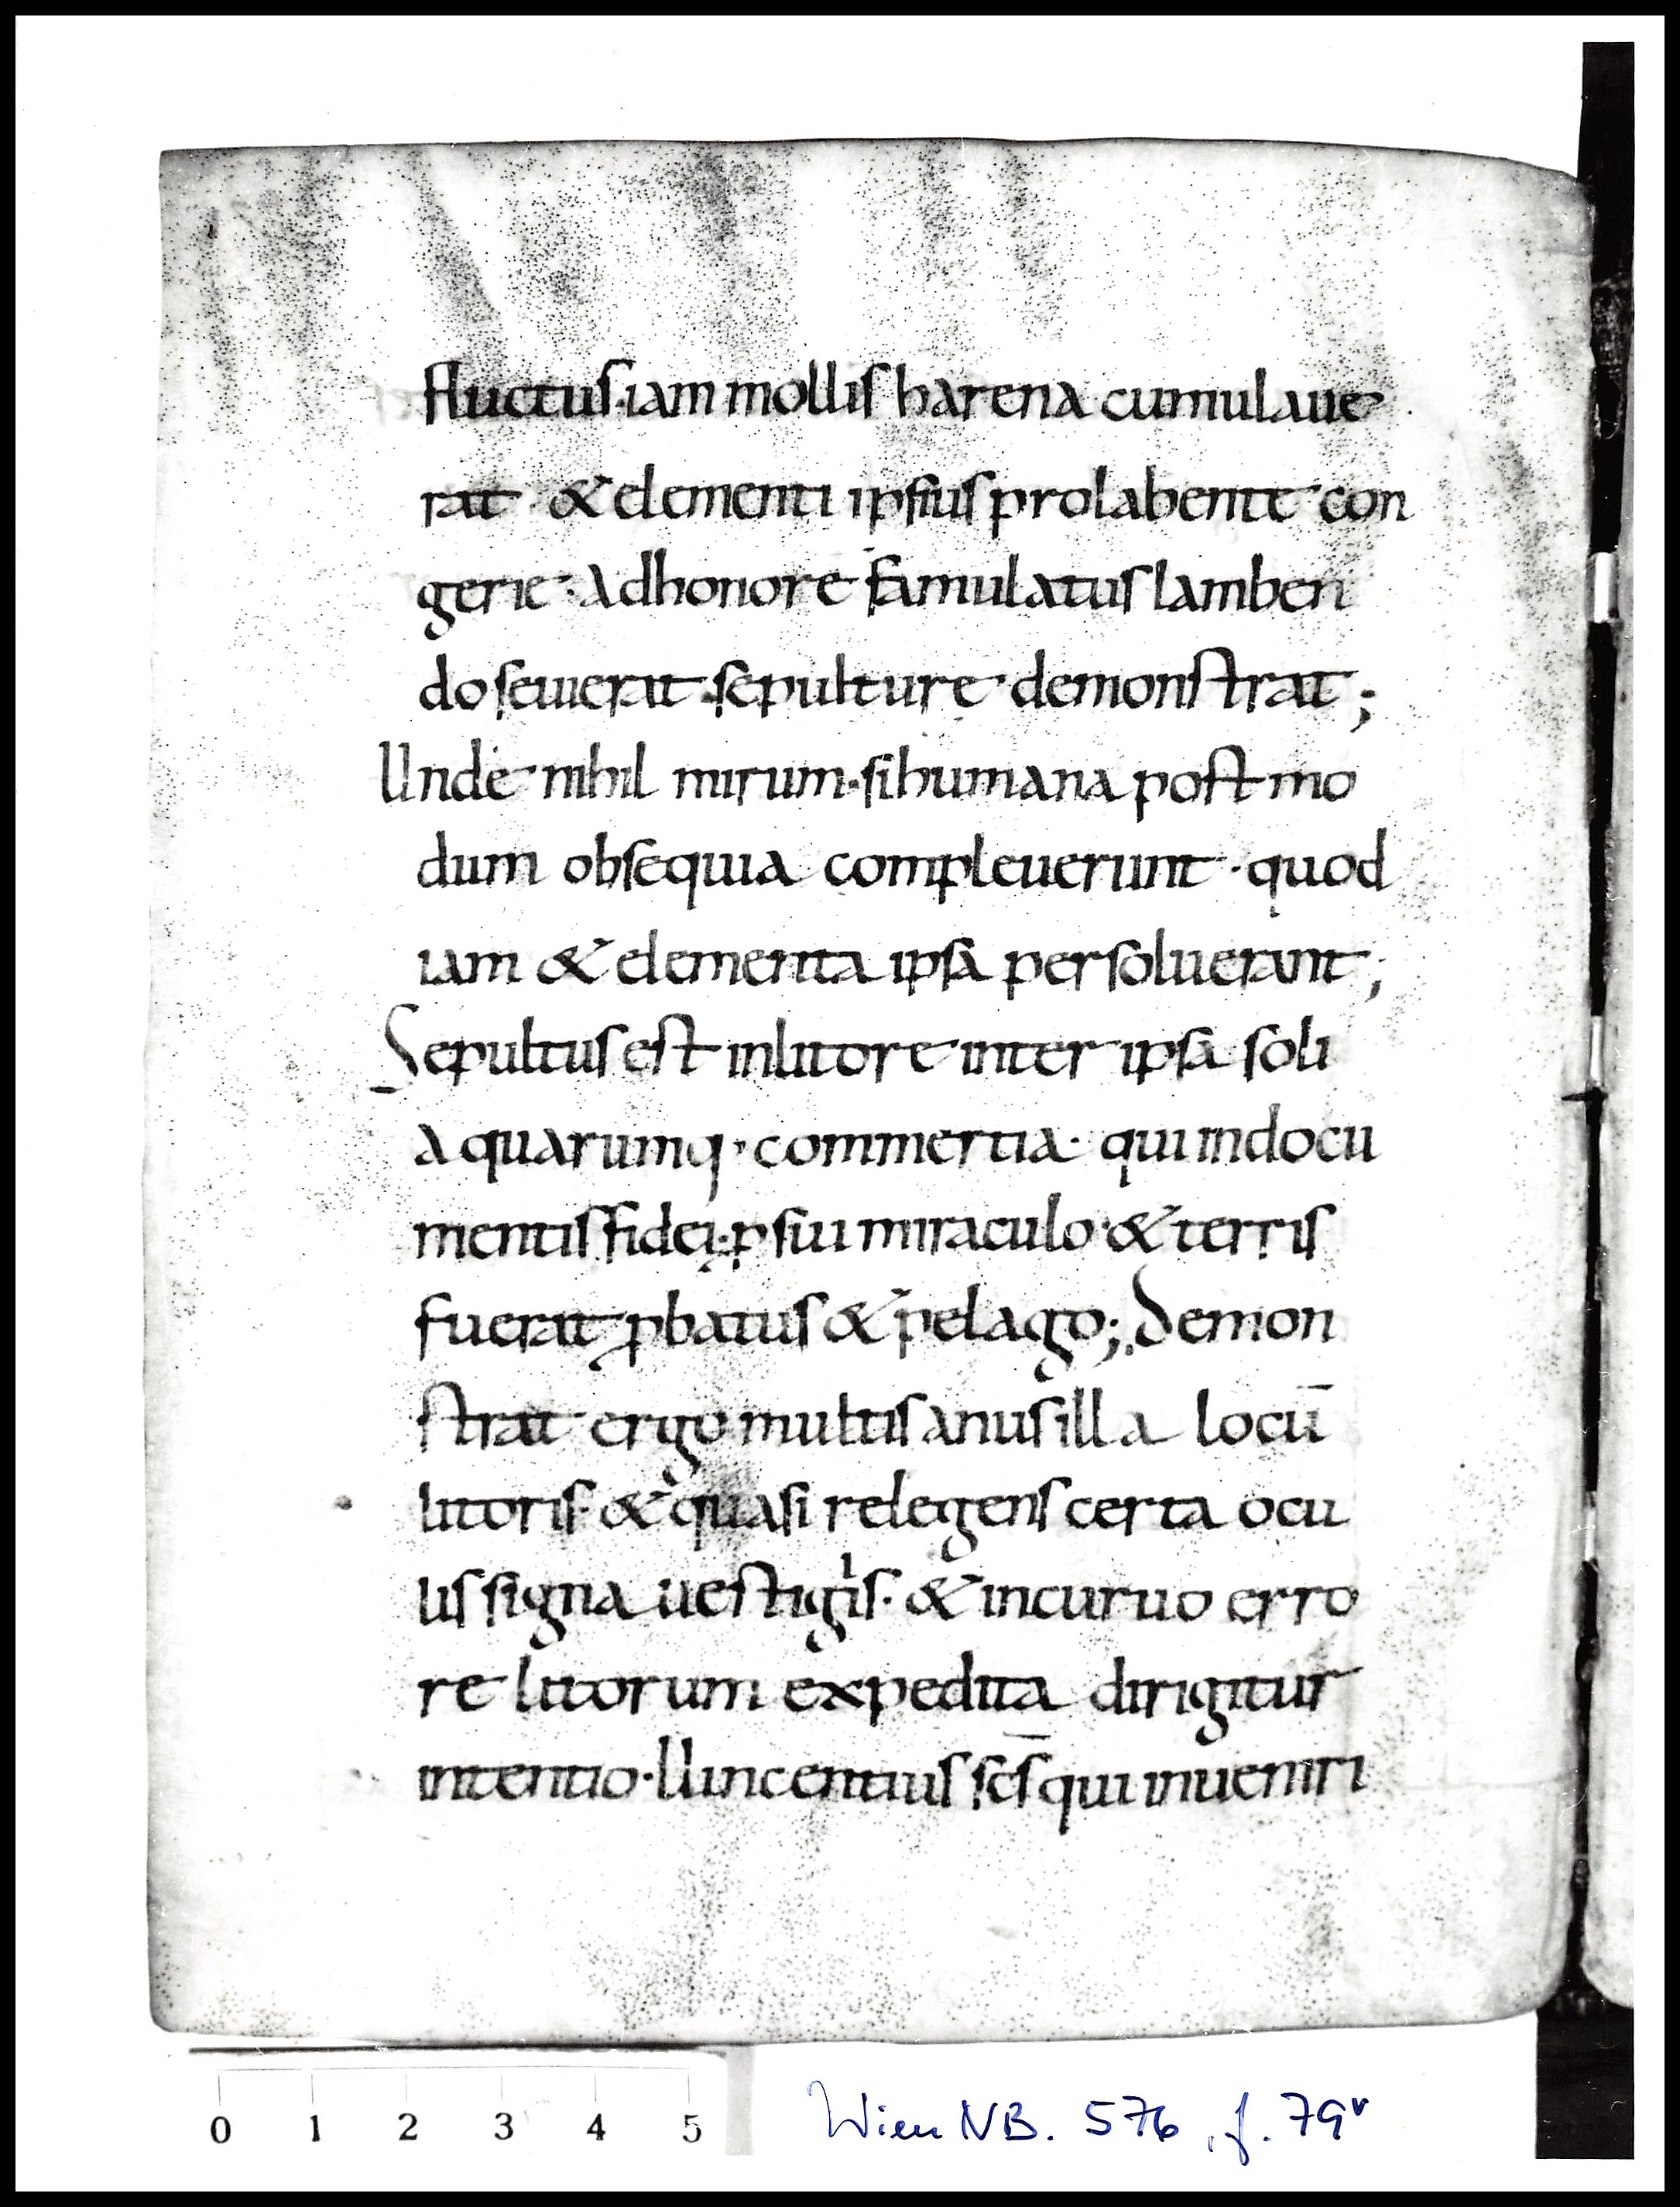 fluctus·iam mollis harena cumulaue
rat · & elementi ipsius prolabente con
gerie· Adhonore famulatus lamben
do seuierat·sepulture demonstrat;
Unde nihil mirum·si humana post mo
dum obsequia compleuerunt·quod
iam & elementa ipsa persoluerant;
Sepultus est inlitore inter ipsa soli
aquarumq· commertia· qui indocu
mentis fidei·ꝑ sui miraculo·& terris
fuerat ꝓbatus & pelago; Demon
strat ergo multis anus illa locū
litoris· & quasi relegens certa ocu
lis signa uestigiis· & incuruo erro
re litorum expedita dirigitur
intentio·Uincentius sc̄s qui inueniri
0 1 2 3 4 5
Wien NB. 576, f. 79v